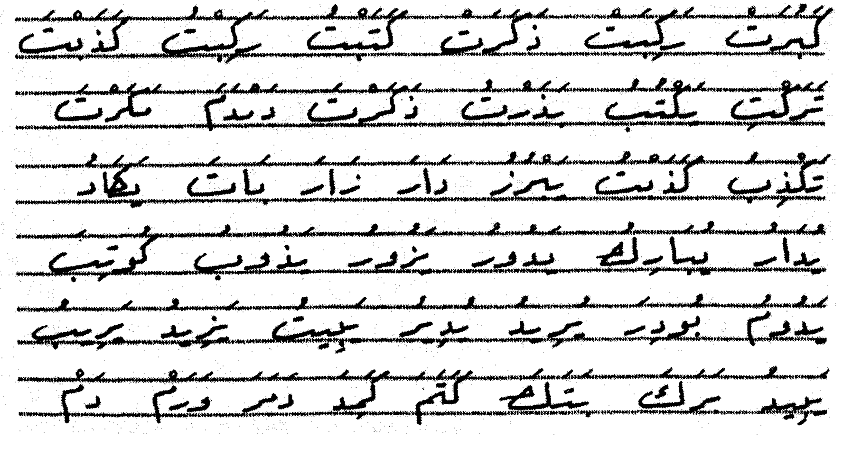 كَبُرَتْ رَكِبَتْ ذَكَرَتْ كَتَبْتُ رَكِبْتُ كَذَبَتْ
تَرَكْتِ يَكْتُبُ بَذَرْتُ ذَكَرْتَ دَمْدَمَ مَكَرْتَ
تَكْذِبُ كَذَبْتُ يَبْرُزُ دَارَ زَارَ بَاتَ يَكَادُ
يُدَارُ يُبَارِكُ يَدُورُ يَزُورُ يَذُوبُ كُوتِبَ
يَدُومُ بُودِرَ يُرِيدُ يُدِيرُ يَبِيتُ يَزِيدُ يَرِيبُ
يَبِيدُ بَرَكَ بَتَكَ كَتَمَ كَمَدَ دَمَرَ وَرَمٌ دَمٌ